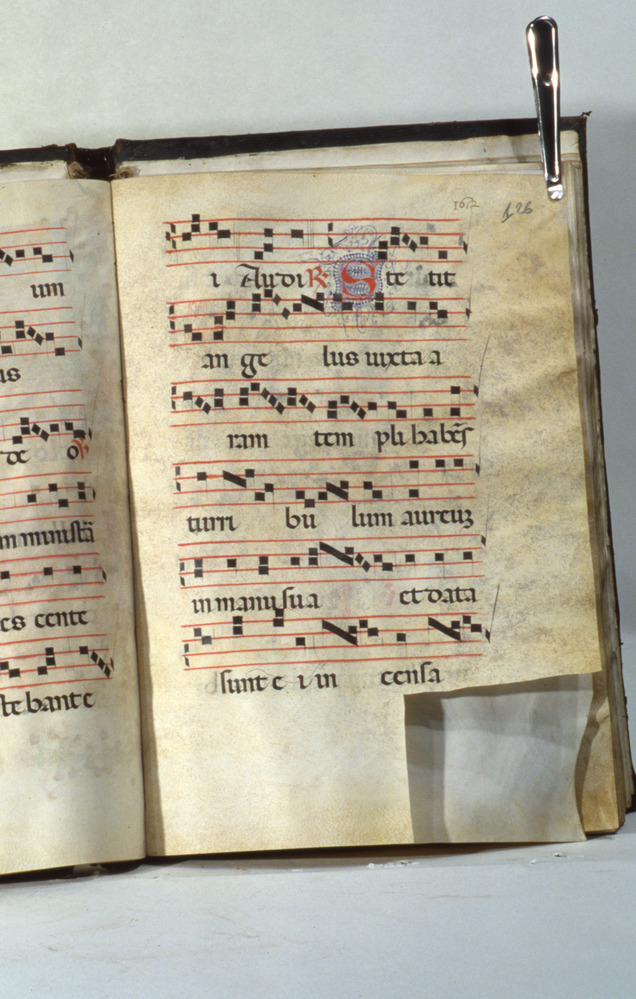 um
us
te o
in ministā
es cente
te bant e
1612 126
i Audi R. Ste tit
an ge lus iuxta a
ram tem pli habēs
turri bu lum aureuz
in manu sua et data
sunt e i in censa